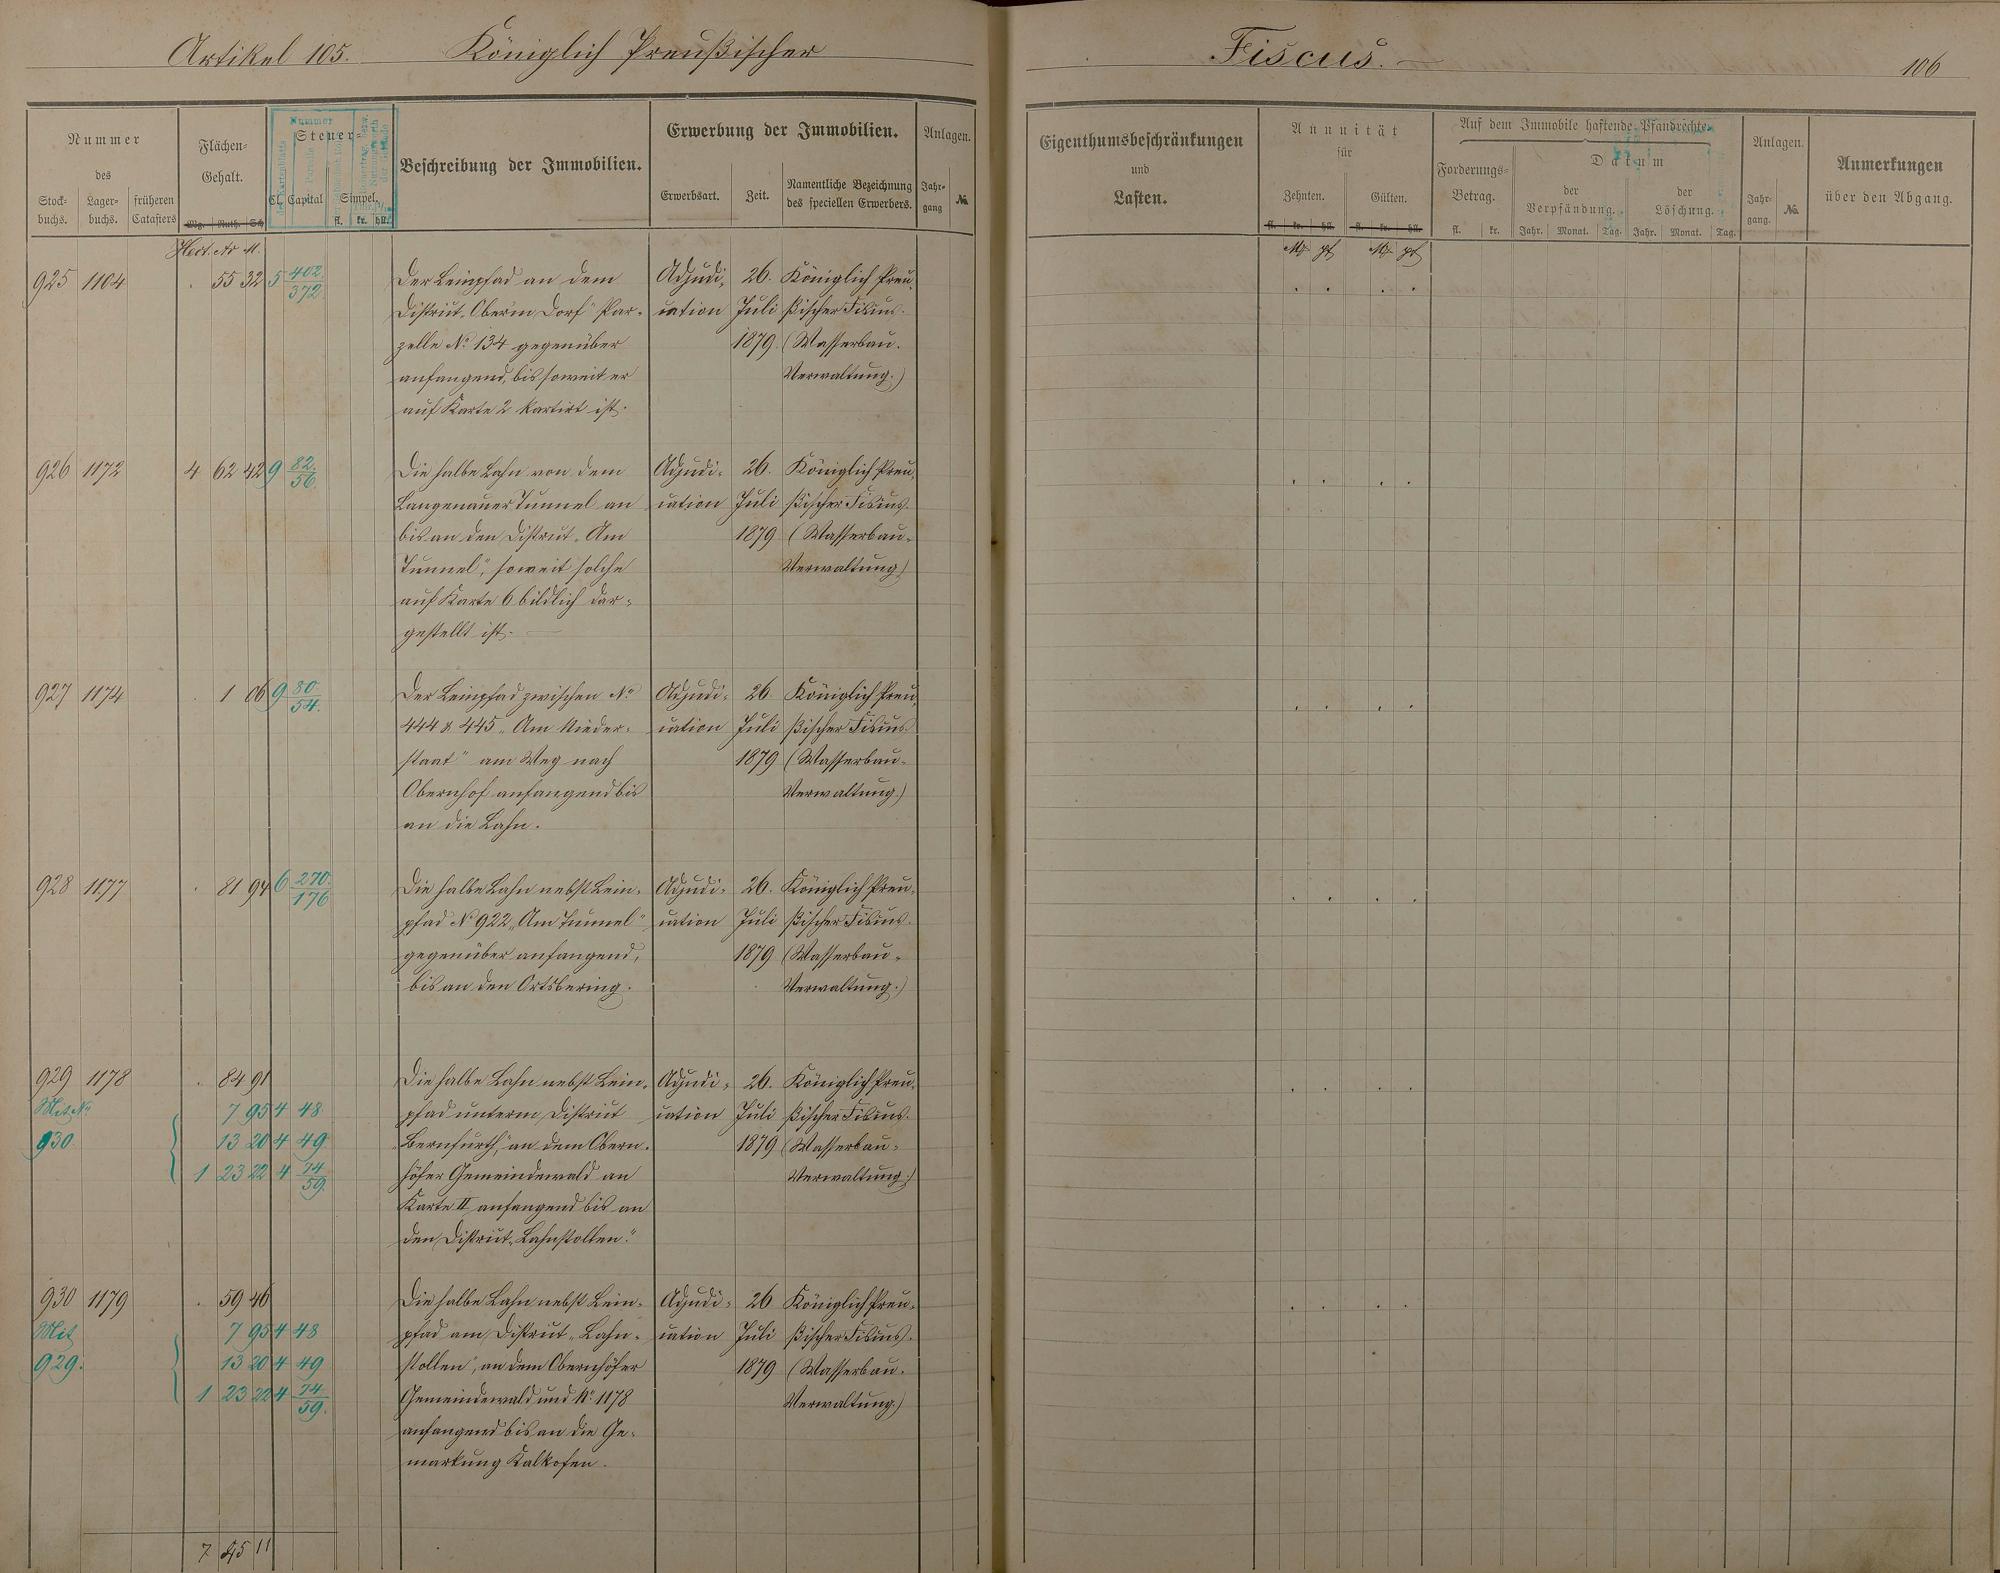 Artikel 105. Königlich Preußischer Fiscus.
106
Nummer
des
Stock-
buchs.
Lager-
buchs.
früheren
Catasters
Flächen-
Gehalt.
Mg. Ruth. Sch.
Nummer
Steuer-
Cl. Capital
Simpel.
fl. kr. hll.
Beschreibung der Immobilien.
Erwerbung der Immobilien.
Erwerbsart.
Zeit.
Namentliche Bezeichnung
des speciellen Erwerbers.
Anlagen.
Jahr-
gang
No.
Eigenthumsbeschränkungen
und
Lasten.
Annuität
für
Zehnten.
Gülten.
fl. kr. hll. fl. kr. hll.
Auf dem Immobile haftende Pfandrechte.
Forderungs-
Betrag.
fl. kr.
Datum
der
Verpfändung.
Jahr. Monat. Tag.
der
Löschung.
Jahr. Monat. Tag.
Anlagen.
Jahr-
gang.
No.
Anmerkungen
über den Abgang.
Hect. Ar M.
Mk. Pf. Mk. Pf.
925 1104 . 55 32 5 402/372
Der Leinpfad an dem
District "Oberm Dorf" Par-
zelle No. 134 gegenüber
anfangend, bis soweit er
auf Karte 2 kartirt ist.
Adjudi-
cation
26.
Juli
1879.
Königlich Preu-
ßischer Fiscus.
(Wasserbau-
Verwaltung.)
926 1172 4 62 42 9 82/56.
Die halbe Lahn von dem
Langenauer Tunnel an
bis an den District "Am
Tunnel", soweit solche
auf Karte 6 bildlich dar-
gestellt ist.
Adjudi-
cation
26.
Juli
1879
Königlich Preu-
ßischer Fiscus.
(Wasserbau-
Verwaltung)
927 1174 . 1 06 9 80/54.
Der Leinpfad zwischen No.
444 & 445 "Am Nieder-
staat" am Weg nach
Obernhof anfangend bis
an die Lahn.
Adjudi-
cation
26.
Juli
1879
Königlich Preu-
ßischer Fiscus.
(Wasserbau-
Verwaltung.)
928 1177 . 81 94 6 270/176
Die halbe Lahn nebst Lein-
pfad No. 922 "Am Tunnel"
gegenüber anfangend,
bis an den Ortsbering.
Adjudi-
cation
26.
Juli
1879
Königlich Preu-
ßischer Fiscus.
(Wasserbau-
Verwaltung.)
929 1178 . 84 91
Mit No. 7 95 4 48
930 13 20 4 49
1 23 22 4 74/59.
Die halbe Lahn nebst Lein-
pfad unterm District
"Bernfurth", an dem Obern-
höfer Gemeindewald an
Karte II anfangend bis an
den District "Lahnstollen".
Adjudi-
cation
26.
Juli
1879
Königlich Preu-
ßischer Fiscus.
(Wasserbau-
Verwaltung.)
930 1179 . 59 46
Mit 7 95 4 48
929. 13 20 4 49
1 23 22 4 74/59.
Die halbe Lahn nebst Lein-
pfad am District "Lahn-
stollen", an dem Obernhöfer
Gemeindewald und No. 1178
anfangend bis an die Ge-
markung Kalkofen.
Adjudi-
cation
26
Juli
1879
Königlich Preu-
ßischer Fiscus.
(Wasserbau-
Verwaltung.)
7 45 11